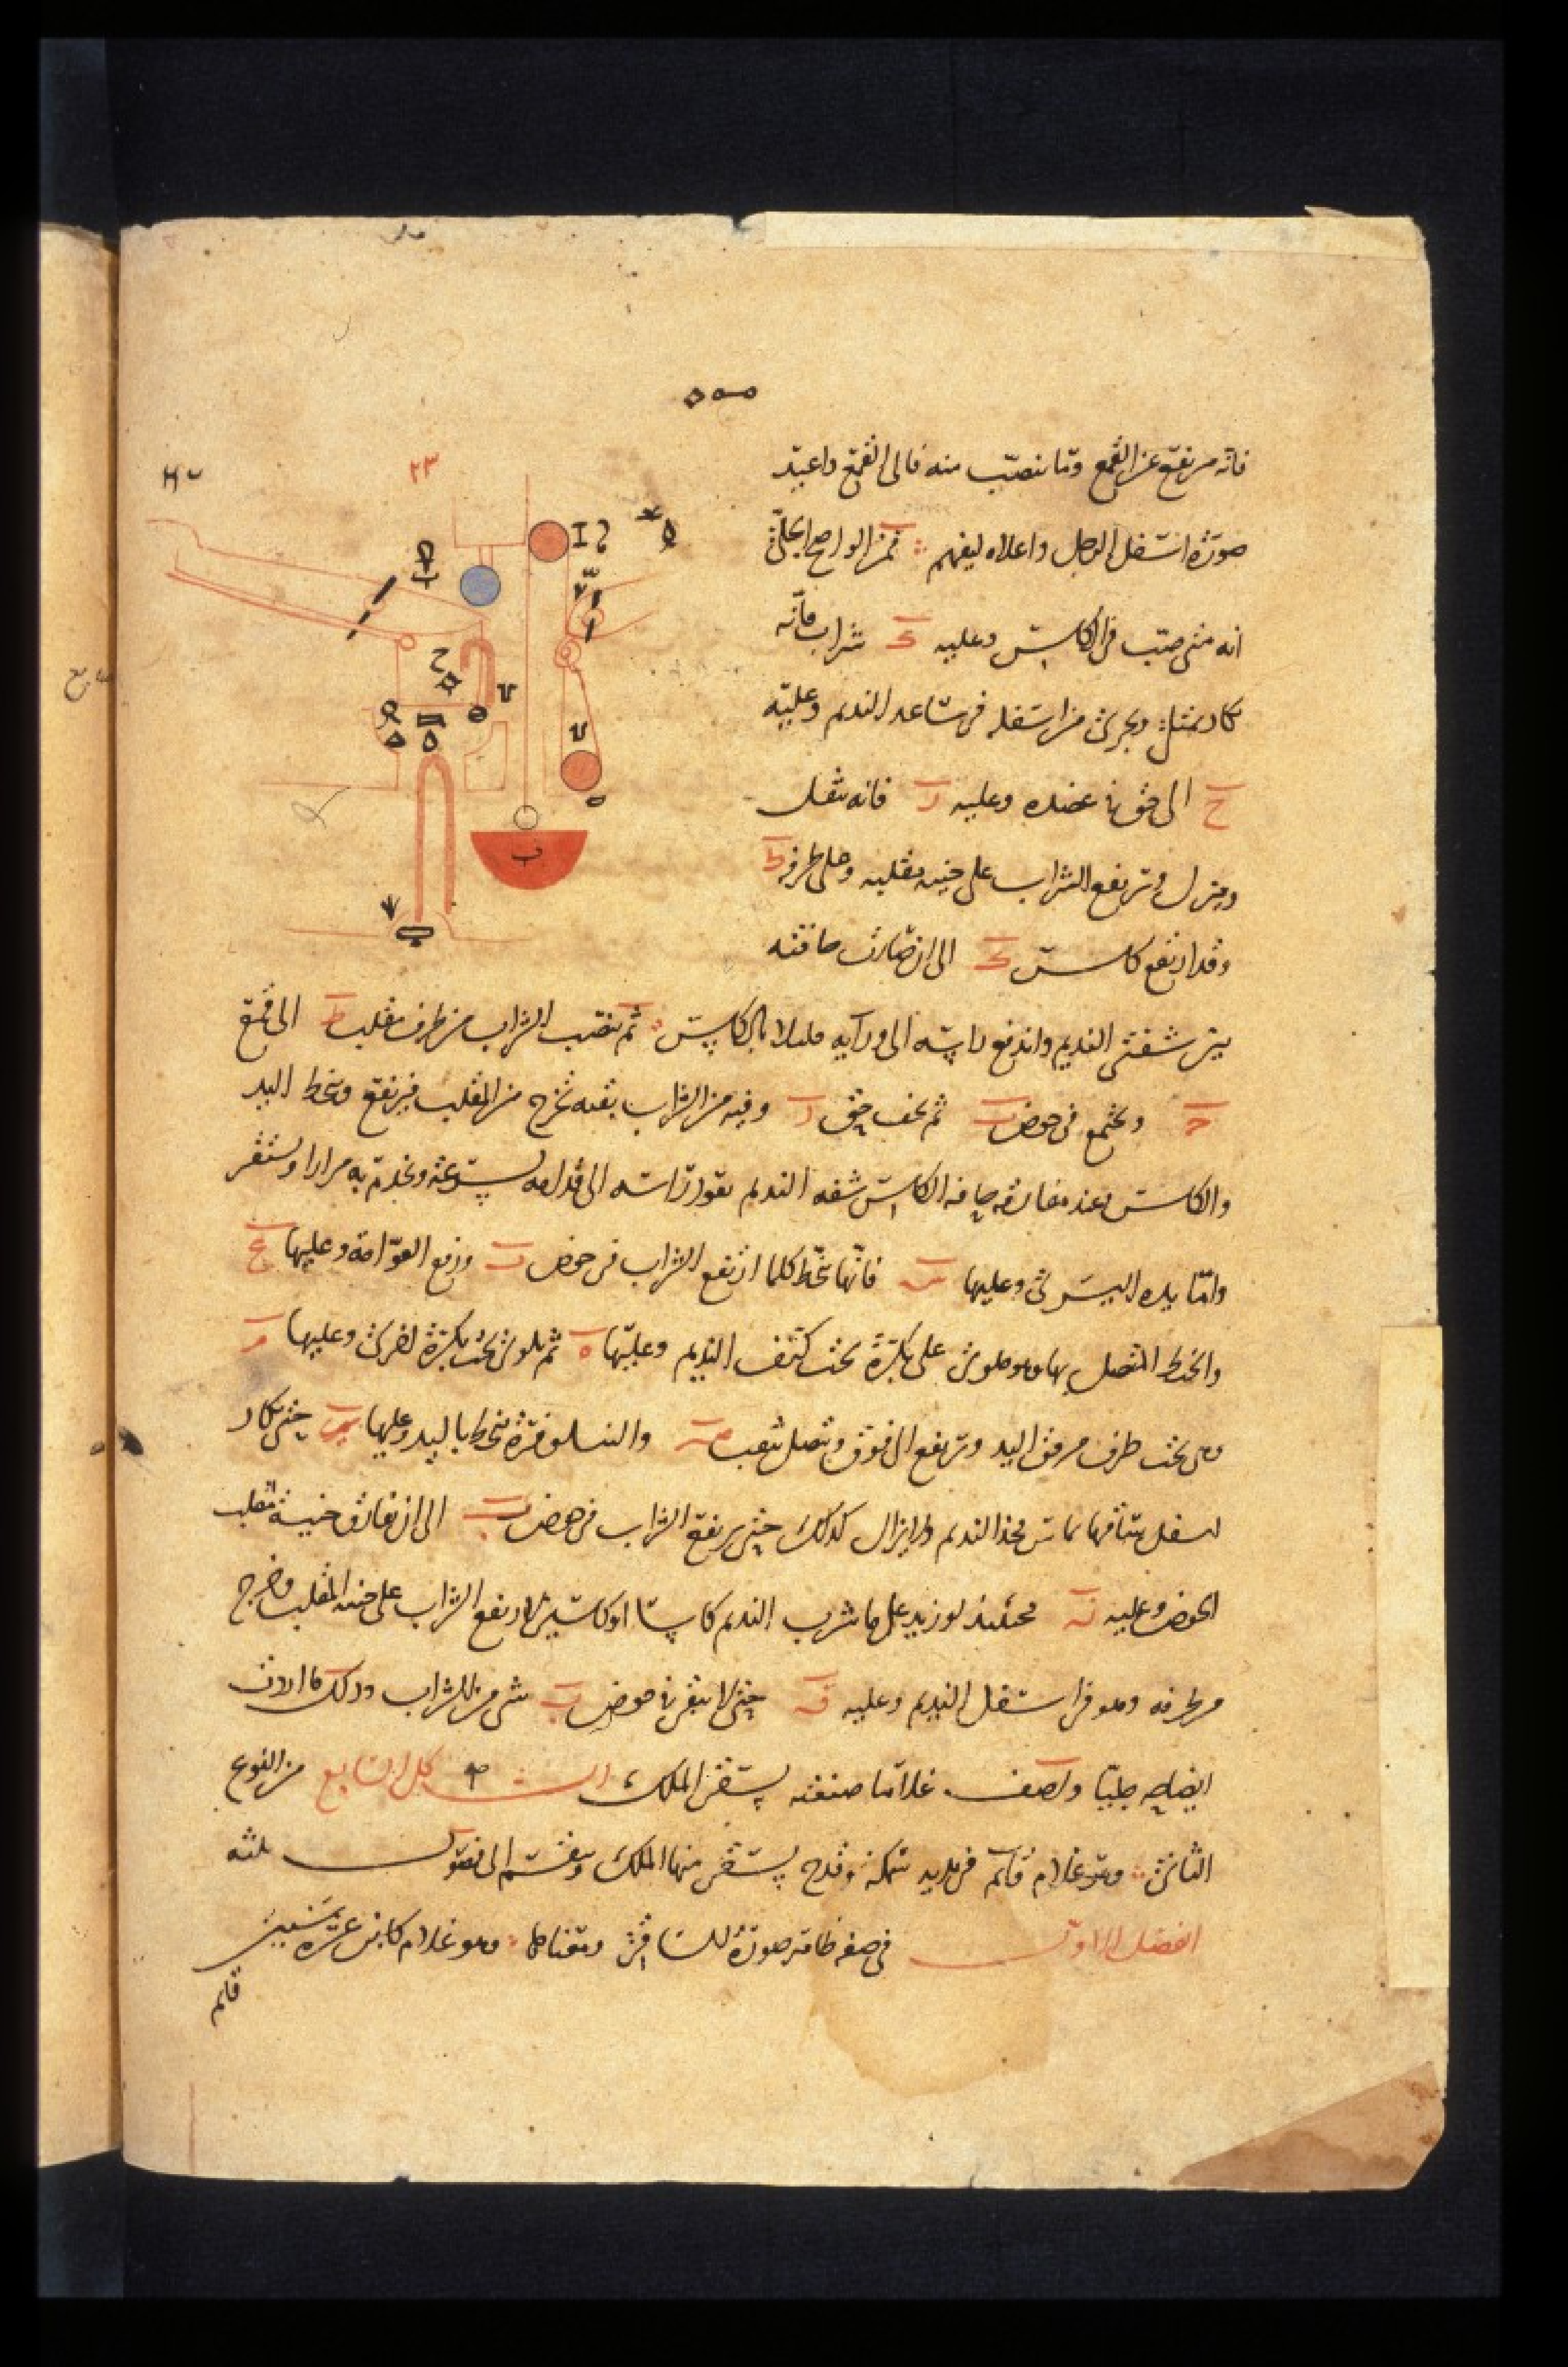 فانه مرتفع عن القمع وما ينصب منه فالى القمع واعيد
صورة اسفل الرجل واعلاه ليفهم فمن الواضح الجلى
انه متى صب فى الكاس وعليه ك شراب فانه
يكاد يمتلئ ويجرى من اسفله فى ساعد النديم وعليه
ح الى حق فى عضده وعليه ر فانه يثقل
وينزل ويرتفع الشراب على جنبه مقلبه وعلى طرفه ط
وقد ارتفع كاس ك الى ان صارت حافته
بين شفتى النديم واندفع راسه الى ورآيه مليلا بالكاس ثم ينصب الشراب من طرف مقلب ط الى قمع
ح ويجتمع فى حوض ب ثم يخف حق ر وفيه من الشراب بقيه تخرج من المقلب فيرتفع وينحط اليد
والكاس بعند مفارقه حافه الكاس شفه النديم يعود راسه الى قدامه بسرعة ويخدم به مرارا ويستقر
واما يده اليسرى وعليها س فانها تنحط كلما ارتفع الشراب فى حوض ب ورفع العوامة وعليها ع
والخيط المتصل بها وهو ملوى على بكرة تحت كتف النديم وعليها ه ثم يلوى تحت بكرة اخرى وعليها م
وهى تحت طرف مرفق اليد ويرتفع الى فوق ويتصل بثقب صـ والنيلوفرة تنحط باليد وعليها حتى يكاد
اسفل ساقها يماس فخذ النديم ولا يزال كذلك حتى يرتفع الشراب فى حوض ب الى ان يفارق جنبيه مقلب
الحوض وعليه ف فحينئذ لو زيد على ما شرب النديم كاسا او كاسين لارتفع الشراب على جنبه المقلب وخرج
من طرفه وهو فى اسفل النديم وعليه ف حتى لا يبقى فى حوض ب شى من الشراب وذلك ما اردت
ايضاحه جليا ولصف غلاما صنعته يسقى الملك الشكل السابع من النوع
الثانى وهو غلام قائم فى يديه سمكة وقدح يسقى منها الملك وينقسم الى فصول ثلثه
الفصل الاول فى صفة ظاهر صورة الساقى ومعناها وهو غلام كابن عشر سنين
قائم
٢٣
ب